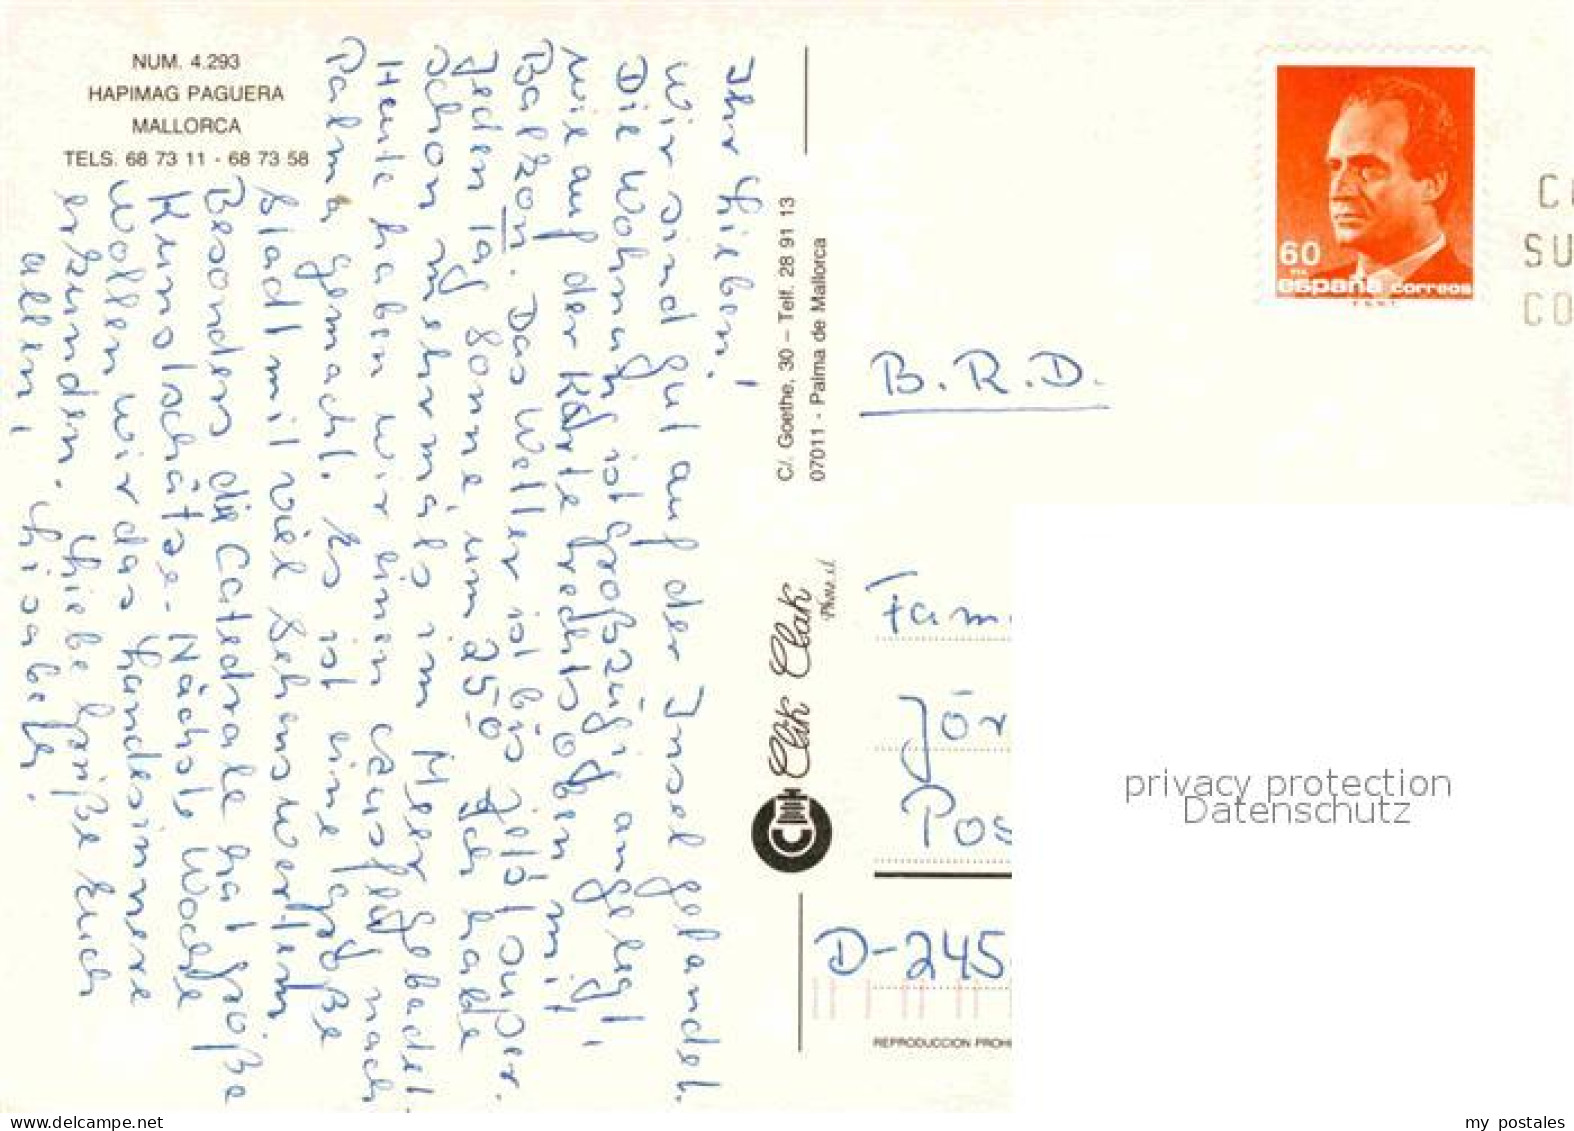 NUM. 4.293
HAPIMAG PAGUERA
MALLORCA
TELS. 68 73 11 - 68 73 58
Ihr Lieben!
Wir sind gut auf der Insel gelandet.
Die Wohnung ist großzügig angelegt,
wie auf der Karte rechts oben mit
Balkon. Das Wetter ist bis jetzt super.
Jeden Tag Sonne um 25° Ich habe
schon mehrmals im Meer gebadet.
Heute haben wir einen Ausflug nach
Palma gemacht. Es ist eine große
Stadt mit viel Sehenswertem.
Besonders die Catedrale hat große
Kunstschätze. Nächste Woche
wollen wir das Landesinnere
erkunden. Liebe Grüße Euch
allen, Lisabeth.
C/. Goethe, 30 – Telf. 28 91 13
07011 - Palma de Mallorca
Clik Clak
Phot. s.l.
60
PTA
españa correos
CO
B.R.D.
Fam.
Jör
Pos
D-245
REPRODUCCION PROHI
privacy protection
Datenschutz
www.delcampe.net
my_postales